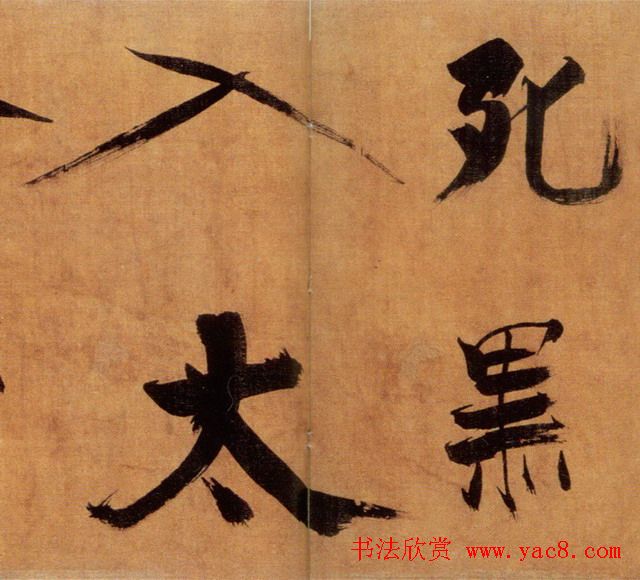 死黑
入太
书法欣赏 www.yac8.com